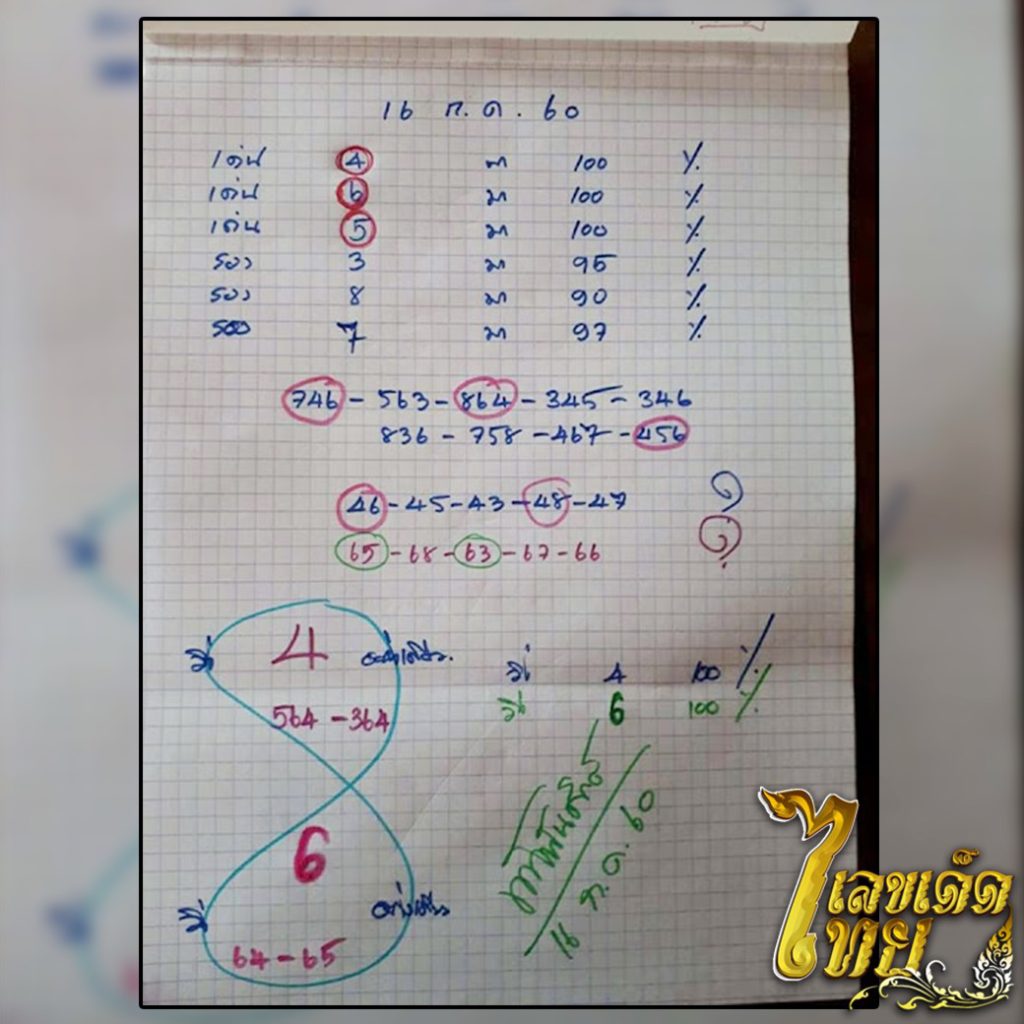 16 ก.ค. 60
เด่น 4 มา 100 %
เด่น 6 มา 100 %
เด่น 5 มา 100 %
รอง 3 มา 95 %
รอง 8 มา 90 %
รอง 7 มา 97 %
746 - 563 - 864 - 345 - 346
836 - 758 - 467 - 456
46 - 45 - 43 - 48 - 47
65 - 68 - 63 - 67 - 66
4
564 - 364
4 100 %
6 100 %
6
64 - 65
16 ก.ค. 60
เลขเด็ด
ไทย